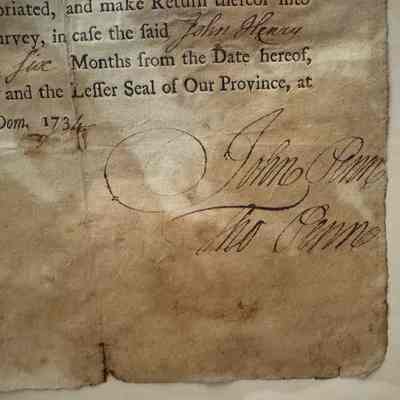 oriated, and make Return thereof into
urvey, in case the said John Henry
six Months from the Date hereof,
and the Leſſer Seal of Our Province, at
Dom. 1734
John Penn
Tho Penn